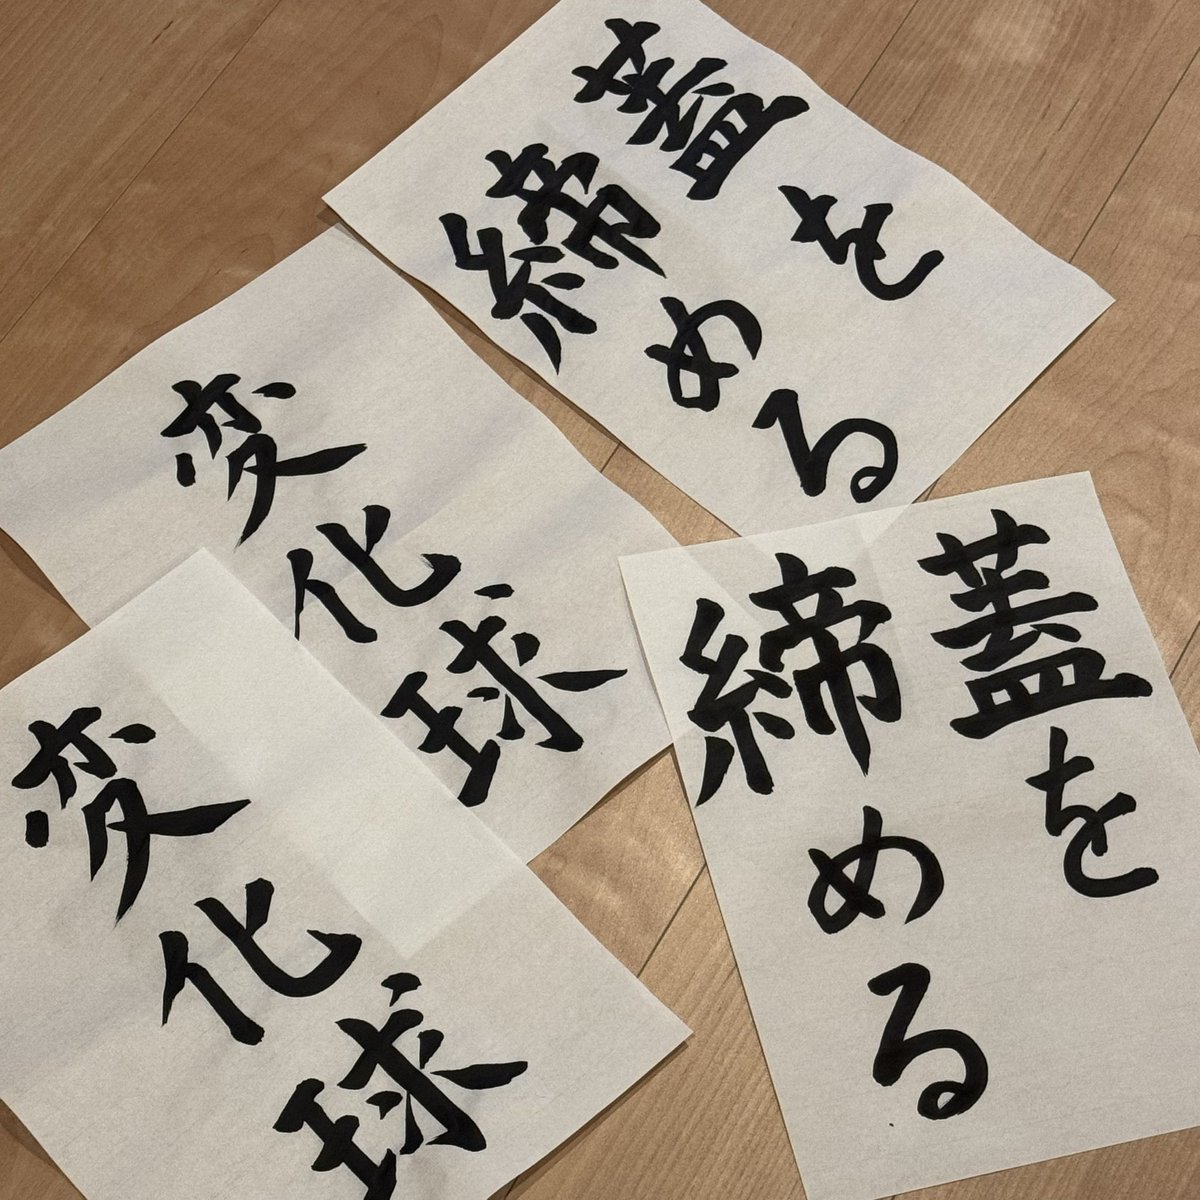 蓋を
締める
変化球
変化球
蓋を
締める